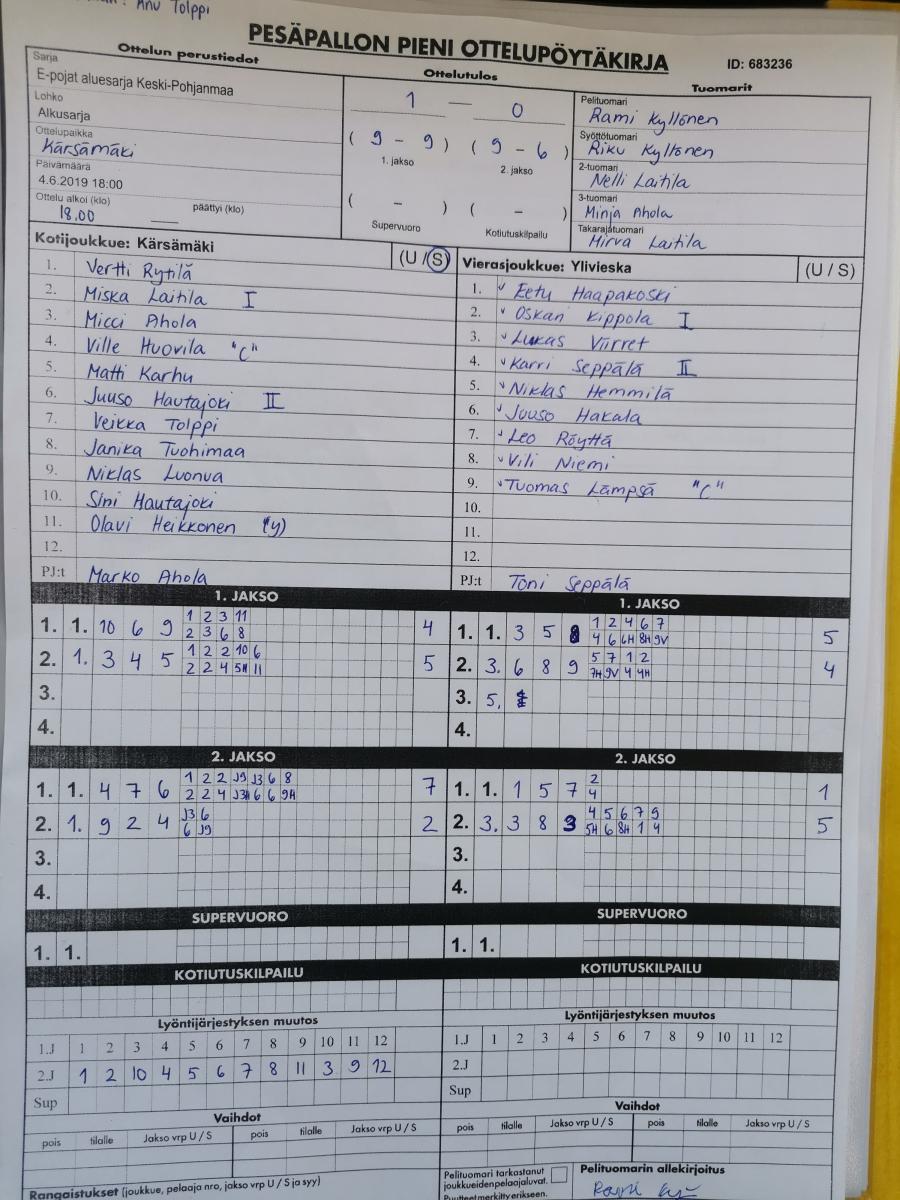 : Anu Tolppi
PESÄPALLON PIENI OTTELUPÖYTÄKIRJA
ID: 683236
Ottelun perustiedot
Sarja
E-pojat aluesarja Keski-Pohjanmaa
Lohko
Alkusarja
Ottelupaikka
Kärsämäki
Päivämäärä
4.6.2019 18:00
Ottelu alkoi (klo) päättyi (klo)
18.00
Ottelutulos
1 — 0
( 9 - 9 ) ( 9 - 6 )
1. jakso 2. jakso
( - ) ( - )
Supervuoro Kotiutuskilpailu
Tuomarit
Pelituomari
Rami Kyllönen
Syöttötuomari
Riku Kyllönen
2-tuomari
Nelli Laitila
3-tuomari
Minja Ahola
Takarajatuomari
Mirva Laitila
Kotijoukkue: Kärsämäki (U / S)
1. Vertti Rytilä
2. Miska Laitila I
3. Micci Ahola
4. Ville Huovila "C"
5. Matti Karhu
6. Juuso Hautajoki II
7. Veikka Tolppi
8. Janika Tuohimaa
9. Niklas Luonua
10. Sini Hautajoki
11. Olavi Heikkonen (y)
12.
PJ:t Marko Ahola
Vierasjoukkue: Ylivieska (U / S)
1. Eetu Haapakoski
2. Oskari Kippola I
3. Lukas Viirret
4. Karri Seppälä II
5. Niklas Hemmilä
6. Juuso Hakala
7. Leo Röyttä
8. Vili Niemi
9. Tuomas Lämpsä "C"
10.
11.
12.
PJ:t Toni Seppälä
1. JAKSO
1. 1. 10 6 9 1 2 3 11 4
2 3 6 8
2. 1. 3 4 5 1 2 2 10 6 5
2 2 4 5H 11
3.
4.
1. JAKSO
1. 1. 3 5 8 1 2 4 6 7 5
4 6 6H 8H 9V
2. 3. 6 8 9 5 7 1 2 4
7H 9V 4 4H
3. 5.
4.
2. JAKSO
1. 1. 4 7 6 1 2 2 J9 J3 6 8 7
2 2 4 J3H 6 6 9H
2. 1. 9 2 4 J3 6 2
6 J9
3.
4.
2. JAKSO
1. 1. 1 5 7 2 1
4
2. 3. 3 8 3 4 5 6 7 9 5
5H 6 8H 1 4
3.
4.
SUPERVUORO
1. 1.
SUPERVUORO
1. 1.
KOTIUTUSKILPAILU
KOTIUTUSKILPAILU
Lyöntijärjestyksen muutos
1.J 1 2 3 4 5 6 7 8 9 10 11 12
2.J 1 2 10 4 5 6 7 8 11 3 9 12
Sup
Lyöntijärjestyksen muutos
1.J 1 2 3 4 5 6 7 8 9 10 11 12
2.J
Sup
Vaihdot
pois tilalle Jakso vrp U / S pois tilalle Jakso vrp U / S
Vaihdot
pois tilalle Jakso vrp U / S pois tilalle Jakso vrp U / S
Rangaistukset (joukkue, pelaaja nro, jakso vrp U / S ja syy)
Pelituomari tarkastanut
joukkueidenpelaajaluvat.
Puutteetmerkittyerikseen.
Pelituomarin allekirjoitus